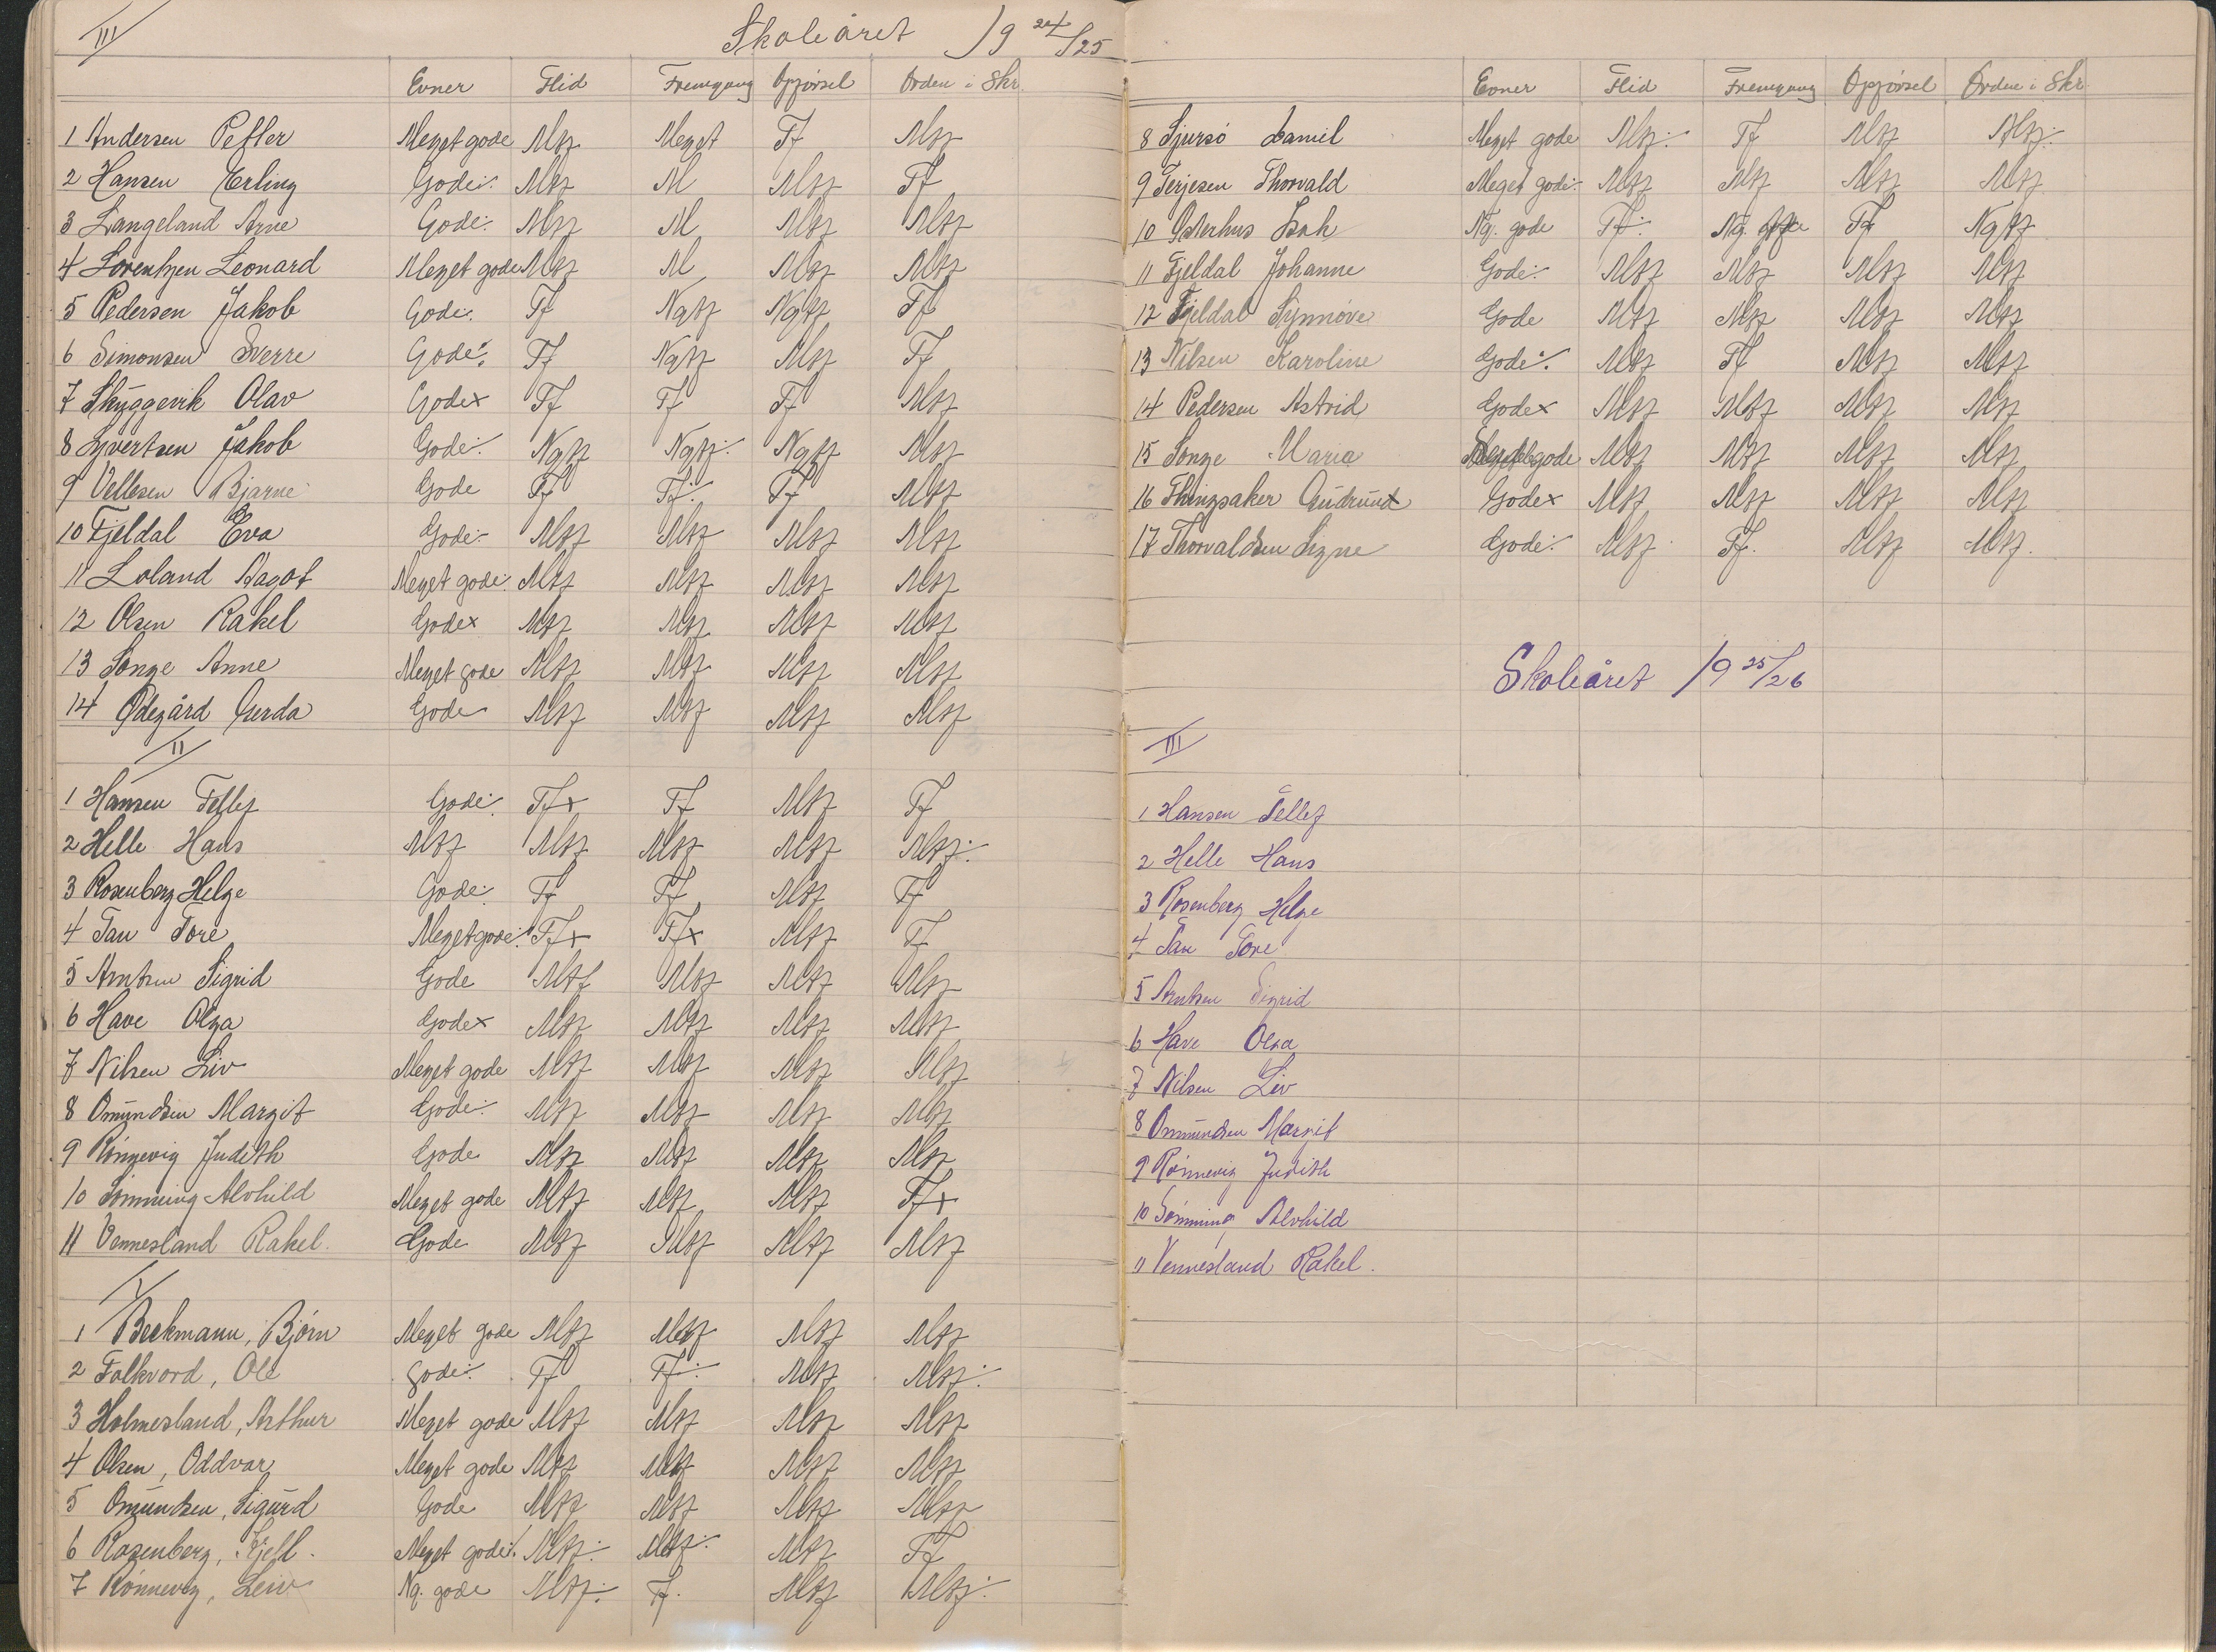 III Skoleåret 19 24/25
Evner Flid Fremgang Opførsel Orden i Skr.
1 Andersen Petter Meget gode Mtf Meget Tf Mtf
2 Hansen Erling Gode÷ Mtf M Mtf Tf
3 Langeland Arne Gode÷ Mtf M Mtf Mtf
4 Lorentzen Leonard Meget gode Mtf M Mtf Mtf
5 Pedersen Jakob Gode÷ Tf Ngtf Ngtf Tf
6 Simonsen Sverre Gode÷ Tf Ngtf Mtf Tf
7 Skyggevik Olav Gode× Tf Tf Tf Mtf
8 Syvertsen Jakob Gode÷ Ngtf Ngtf÷ Ngtf Mtf
9 Vellesen Bjarne Gode Tf Tf÷ Tf Mtf
10 Fjeldal Eva Gode÷ Mtf Mtf Mtf Mtf
11 Loland Dagot Meget gode÷ Mtf Mtf Mtf Mtf
12 Olsen Rakel Gode× Mtf Mtf Mtf Mtf
13 Songe Anne Meget gode Mtf Mtf Mtf Mtf
14 Ødegård Gerda Gode Mtf Mtf Mtf Mtf
II
1 Hansen Tellef Gode÷ Tf× Tf Mtf Tf
2 Helle Hans Mtf Mtf Mtf Mtf Mtf÷
3 Rosenberg Helge Gode÷ Tf Tf Mtf Tf
4 Tau Tore Meget gode÷ Tf× Tf× Mtf Tf
5 Arntsen Sigrid Gode Mtf Mtf Mtf Mtf
6 Have Olga Gode× Mtf Mtf Mtf Mtf
7 Nilsen Liv Meget gode Mtf Mtf Mtf Mtf
8 Omundsen Margit Gode÷ Mtf Mtf Mtf Mtf
9 Rønnevig Judith Gode Mtf Mtf Mtf Mtf
10 Sømming Alvhild Meget gode Mtf Mtf Mtf Tf×
11 Vennesland Rakel. Gode Mtf Mtf Mtf Mtf
I
1 Beckmann, Bjørn Meget gode Mtf Mtf Mtf Mtf
2 Falkvord, Ole gode÷ Tf Tf÷ Mtf Mtf÷
3 Holmesland, Arthur Meget gode Mtf Mtf Mtf Mtf
4 Olsen, Oddvar Meget gode Mtf Mtf Mtf Mtf
5 Omundsen, Sigurd Gode Mtf Mtf Mtf Mtf
6 Rosenberg, Kjell. Meget gode÷ Mtf÷ Mtf÷ Mtf Tf
7 Rønnevig, Leiv Ng. gode Mtf÷ Tf. Mtf Mtf÷
Evner Flid Fremgang Opførsel Orden i Skr.
8 Sjursö Daniel Meget gode Mtf÷ Tf Mtf Mtf÷
9 Terjesen Thorvald Meget gode÷ Mtf Mtf Mtf Mtf
10 Østerhus Isak Ng. gode Tf÷ Ng. Tf Ngtf
11 Fjeldal Johanne Gode÷ Mtf Mtf Mtf Mtf
12 Fjeldal Synnøve Gode Mtf Mtf Mtf Mtf
13 Nilsen Karoline Gode÷ Mtf Tf Mtf Mtf
14 Pedersen Astrid Gode× Mtf Mtf Mtf Mtf
15 Songe Maria gode Mtf Mtf Mtf Mtf
16 Thingsaker Gudrun Gode× Mtf Mtf Mtf Mtf
17 Thorvaldsen Signe Gode÷ Mtf Tf. Mtf Mtf.
Skoleåret 19 25/26
III
1 Hansen Tellef
2 Helle Hans
3 Rosenberg Helge
4 Tau Tore
5 Arntsen Sigrid
6 Have Olga
7 Nilsen Liv
8 Ommundsen Margit
9 Rønnevig Judith
10 Sømming Alvhild
11 Vennesland Rakel.